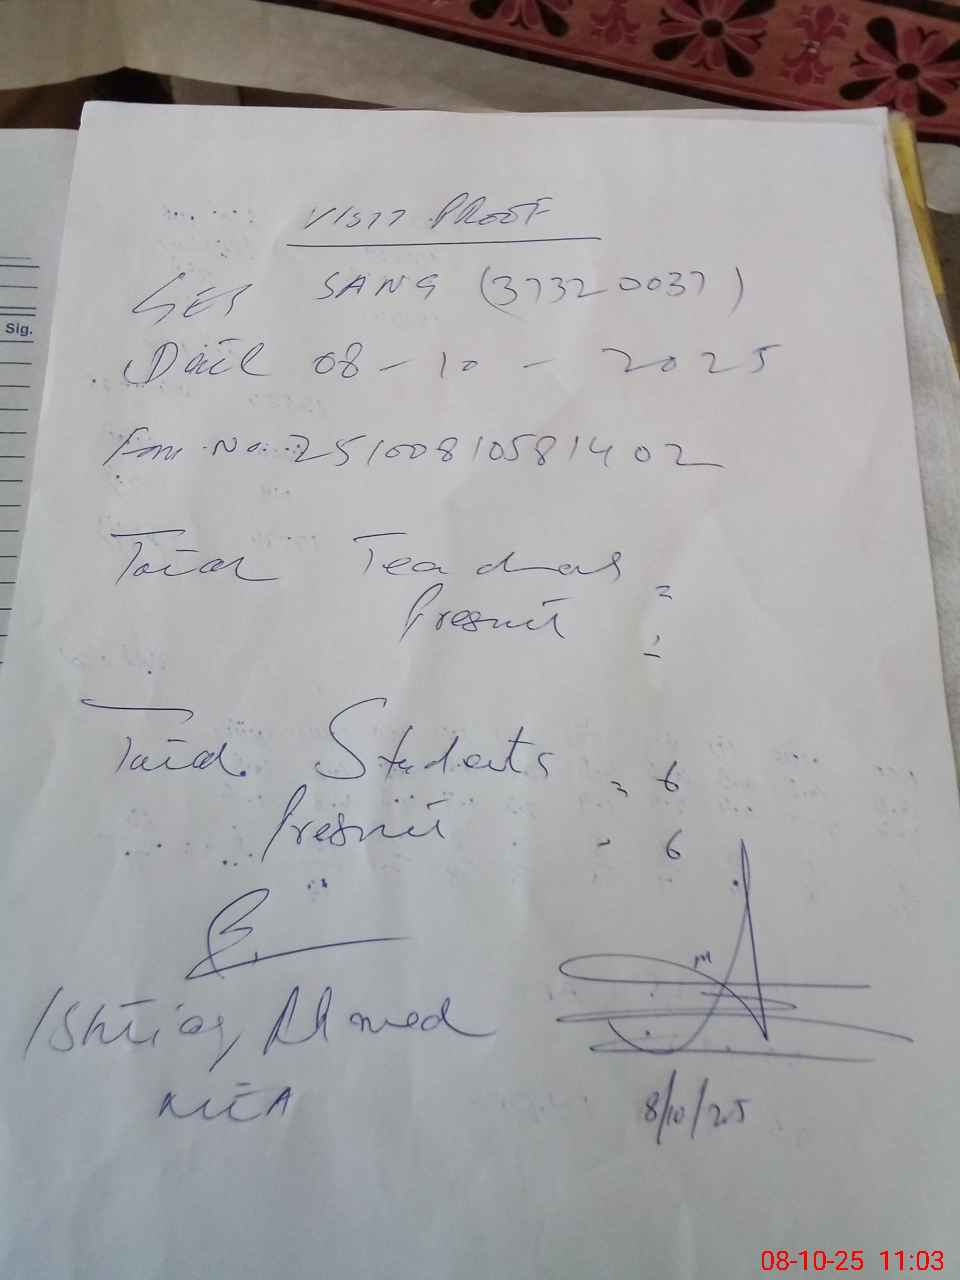 Sig.
VISIT PROOF
GES SANG (37320037)
Date 08-10-2025
Form No. 25100810581402
Total Teachers =
Present =
Total Students = 6
Present = 6
Ishtiaq Ahmed
MEA
8/10/25
08-10-25 11:03